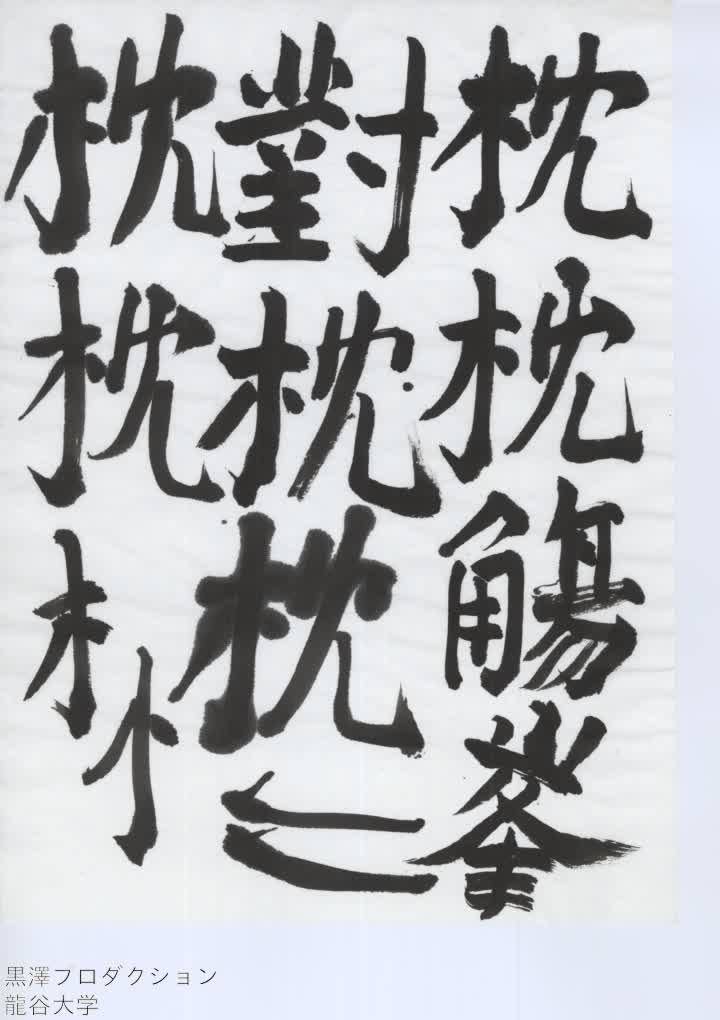 枕枕觴峯
對枕枕
枕枕木
黒澤プロダクション
龍谷大学